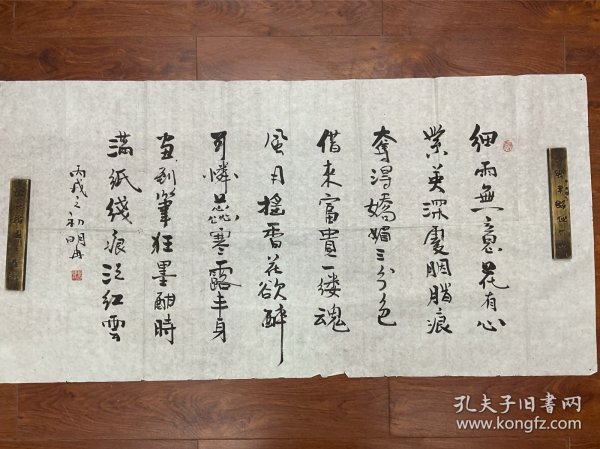 細雨無意花有心
紫英深處胭脂痕
奪得嬌媚三分色
借來富貴一缕魂
風月搖香花欲醉
可憐蕊寒露半身
畫到筆狂墨酣時
滿紙綫痕泛红雲
丙戌之初
孔夫子旧书网
www.kongfz.com